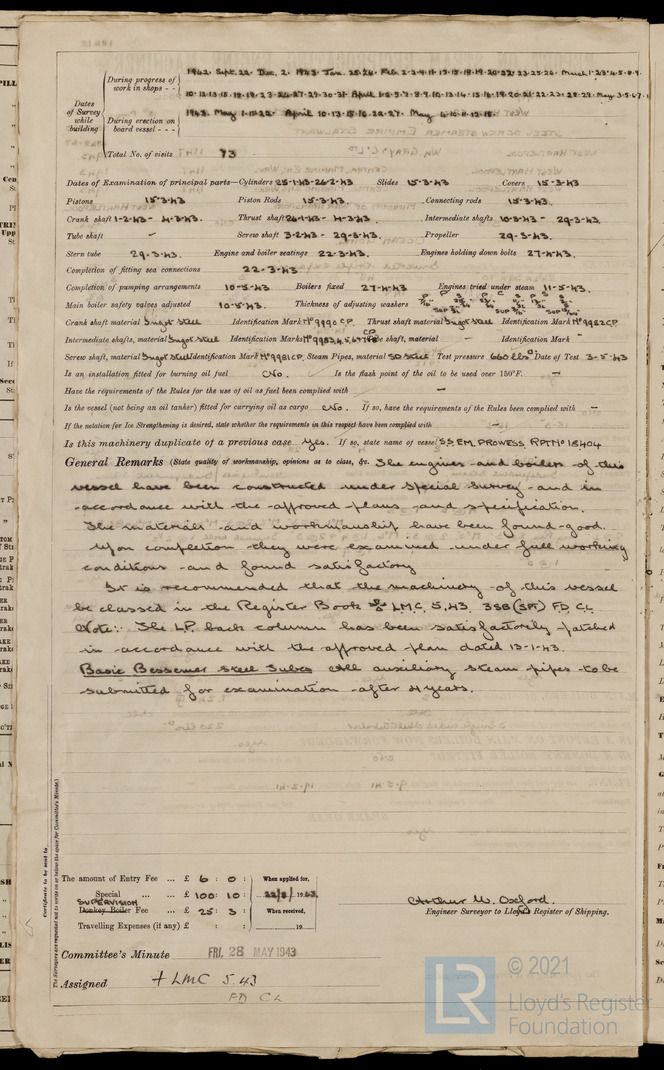 During progress of work in shops - -
1942. Sept. 22. Dec. 2. 1943. Jan. 25.26. Feb. 2.3.9.11.
Dates of Survey while building
During erection on board vessel - - -
1943. May 1.11.22. April 10.13.15.16.20.27. May 4.10.11.12.18.
Total No. of visits 73
Dates of Examination of principal parts—Cylinders 25-1-43-26-2-43 Slides 15-3-43 Covers 15-3-43
Pistons 15-3-43 Piston Rods 15-3-43. Connecting rods 15-3-43.
Crank shaft 1-2-43 - 4-3-43. Thrust shaft 26-1-43 - 4-3-43. Intermediate shafts 10-3-43 - 29-3-43.
Tube shaft - Screw shaft 3-2-43 - 29-3-43. Propeller 29-3-43.
Stern tube 29-3-43. Engine and boiler seatings 22-3-43. Engines holding down bolts 27-4-43.
Completion of fitting sea connections 22-3-43
Completion of pumping arrangements 10-5-43 Boilers fixed 27-4-43 Engines tried under steam 11-5-43.
Main boiler safety valves adjusted 10-5-43. Thickness of adjusting washers
Crank shaft material Ingot Steel Identification Mark Nº9990 CP. Thrust shaft material Ingot Steel Identification Mark Nº9982 CP
Intermediate shafts, material Ingot Steel Identification Marks Nº9983,4,5,6,7 CP shaft, material - Identification Mark -
Screw shaft, material Ingot Steel Identification Mark Nº9981 CP. Steam Pipes, material SD Steel Test pressure 660 lbs□" Date of Test 3-5-43
Is an installation fitted for burning oil fuel No. Is the flash point of the oil to be used over 150°F. -
Have the requirements of the Rules for the use of oil as fuel been complied with -
Is the vessel (not being an oil tanker) fitted for carrying oil as cargo No. If so, have the requirements of the Rules been complied with -
If the notation for Ice Strengthening is desired, state whether the requirements in this respect have been complied with -
Is this machinery duplicate of a previous case Yes. If so, state name of vessel SS EM. PROWESS RPT Nº 18404
General Remarks (State quality of workmanship, opinions as to class, &c. The engines and boilers of this
vessel have been constructed under Special Survey and in
accordance with the approved plans and specification.
The materials and workmanship have been found good.
Upon completion they were examined under full working
conditions and found satisfactory
It is recommended that the machinery of this vessel
be classed in the Register Book LMC 5,43. 3SB (SPT) FD CL
Note:- The L.P. back column has been satisfactorily patched
in accordance with the approved plan dated 13-1-43.
Basic Bessemer Steel Tubes All auxiliary steam pipes to be
submitted for examination after 4 years.
Certificate to be sent to
The Surveyors are requested not to write on or below the space for Committee's Minute.
The amount of Entry Fee ... £ 6 : 0 : When applied for,
Special ... ... £ 100 : 10 : 22/5/1943.
SUPERVISION
Donkey Boiler Fee ... £ 25 : 3 : When received,
Travelling Expenses (if any) £ : : 19
Arthur W. Oxford.
Engineer Surveyor to Lloyd's Register of Shipping.
Committee's Minute FRI. 28 MAY 1943
Assigned + LMC 5.43
FD CL
© 2021
LR Lloyd's Register
Foundation